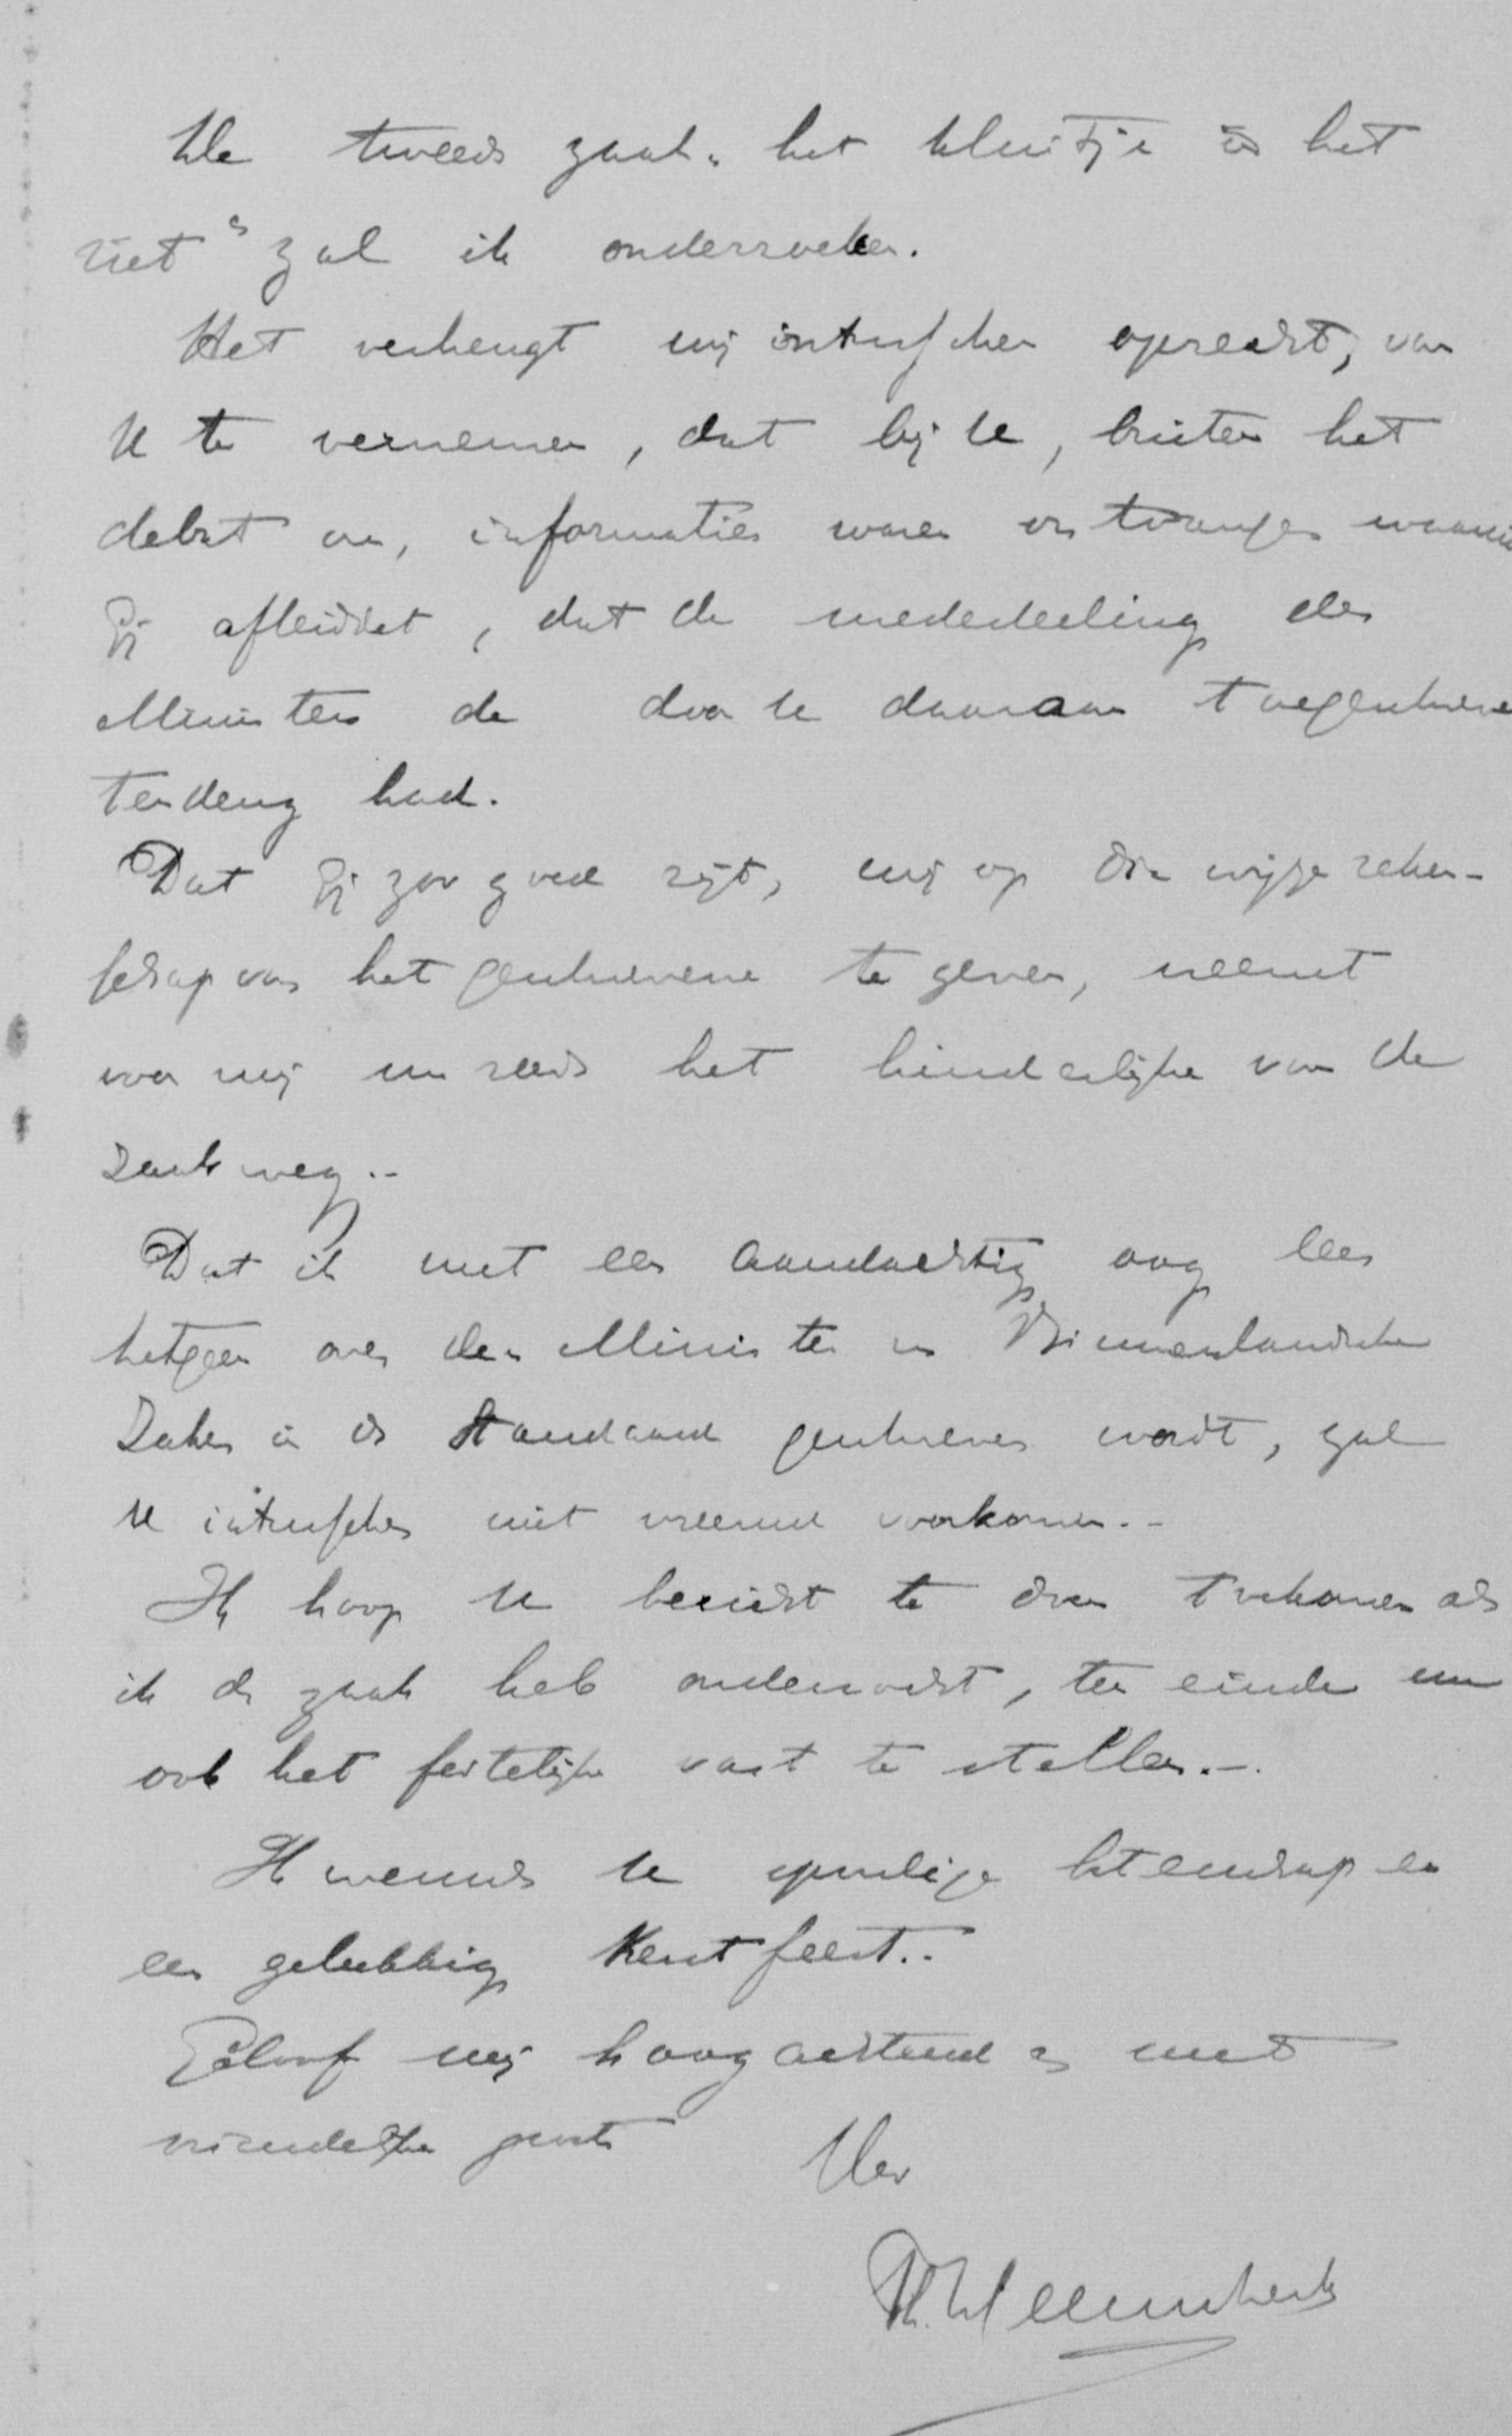 De tweede zaak "het kluitje in het
riet" zal ik onderzoeken.
Het verheugt mij intusschen oprecht, van
U te vernemen, dat bij U, buiten het
debat om, informaties waren ontvangen waaruit
Gij afleiddet, dat de mededeeling des
Ministers de door U daaraan toegeschreven
tendenz had.
Dat Gij zoo goed zijt, mij op die wijze reken-
schap van het geschrevene te geven, neemt
voor mij nu reeds het hinderlijke van de
zaak weg.-
Dat ik met een aandachtig oog lees
hetgeen over den Minister v. Binnenlandsche
Zaken in de Standaard geschreven wordt, zal
U intusschen niet vreemd voorkomen.-
Ik hoop U bericht te doen toekomen als
ik de zaak heb onderzocht, ten einde nu
ook het feitelijke vast te stellen.-
Ik wensch U spoedige beterschap en
een gelukkig Kerstfeest.-
Geloof mij hoogachtend en met
vriendelijke groeten
Uw
Th. Heemskerk